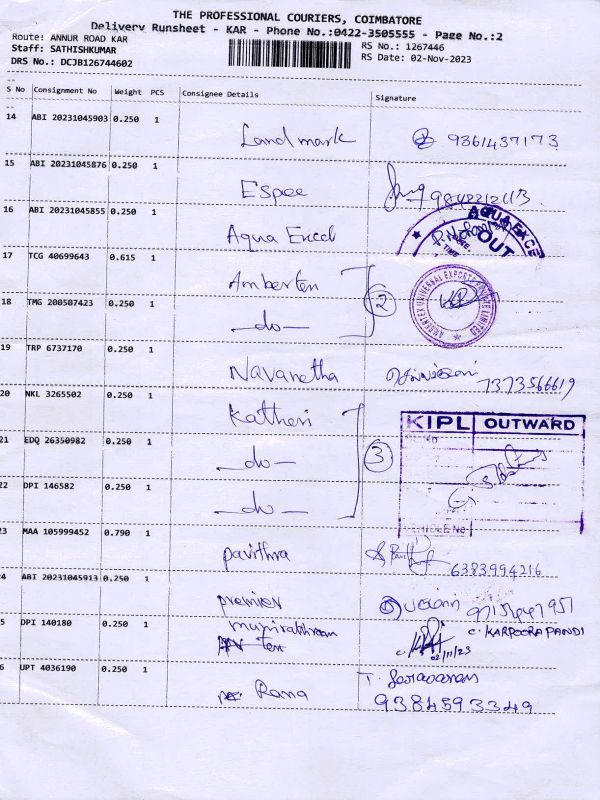 THE PROFESSIONAL COURIERS, COIMBATORE
Delivery Runsheet - KAR - Phone No.:0422-3505555 - Page No.:2
Route: ANNUR ROAD KAR
Staff: SATHISHKUMAR
DRS No.: DCJB126744602
RS No.: 1267446
RS Date: 02-Nov-2023
S No Consignment No Weight PCS Consignee Details Signature
14 ABI 20231045903 0.250 1
Land mark 9861437173
15 ABI 20231045876 0.250 1
Espee
16 ABI 20231045855 0.250 1
Aqua Excel
AQUA EXCE
OUT
TIME
17 TCG 40699643 0.615 1
Amberten
2
18 TMG 200507423 0.250 1
-do-
19 TRP 6737170 0.250 1
Navanetha 7373566619
20 NKL 3265502 0.250 1
Katheri
KIPL OUTWARD
21 EDQ 26350982 0.250 1
-do- 3
22 DPI 146582 0.250 1
-do-
23 MAA 105999452 0.790 1
pavithra 6383994216
24 ABI 20231045913 0.250 1
premier
5 DPI 140180 0.250 1
Tex C. KARPOORA PANDI
02/11/23
6 UPT 4036190 0.250 1
Rana T. Saravanan
9384593349